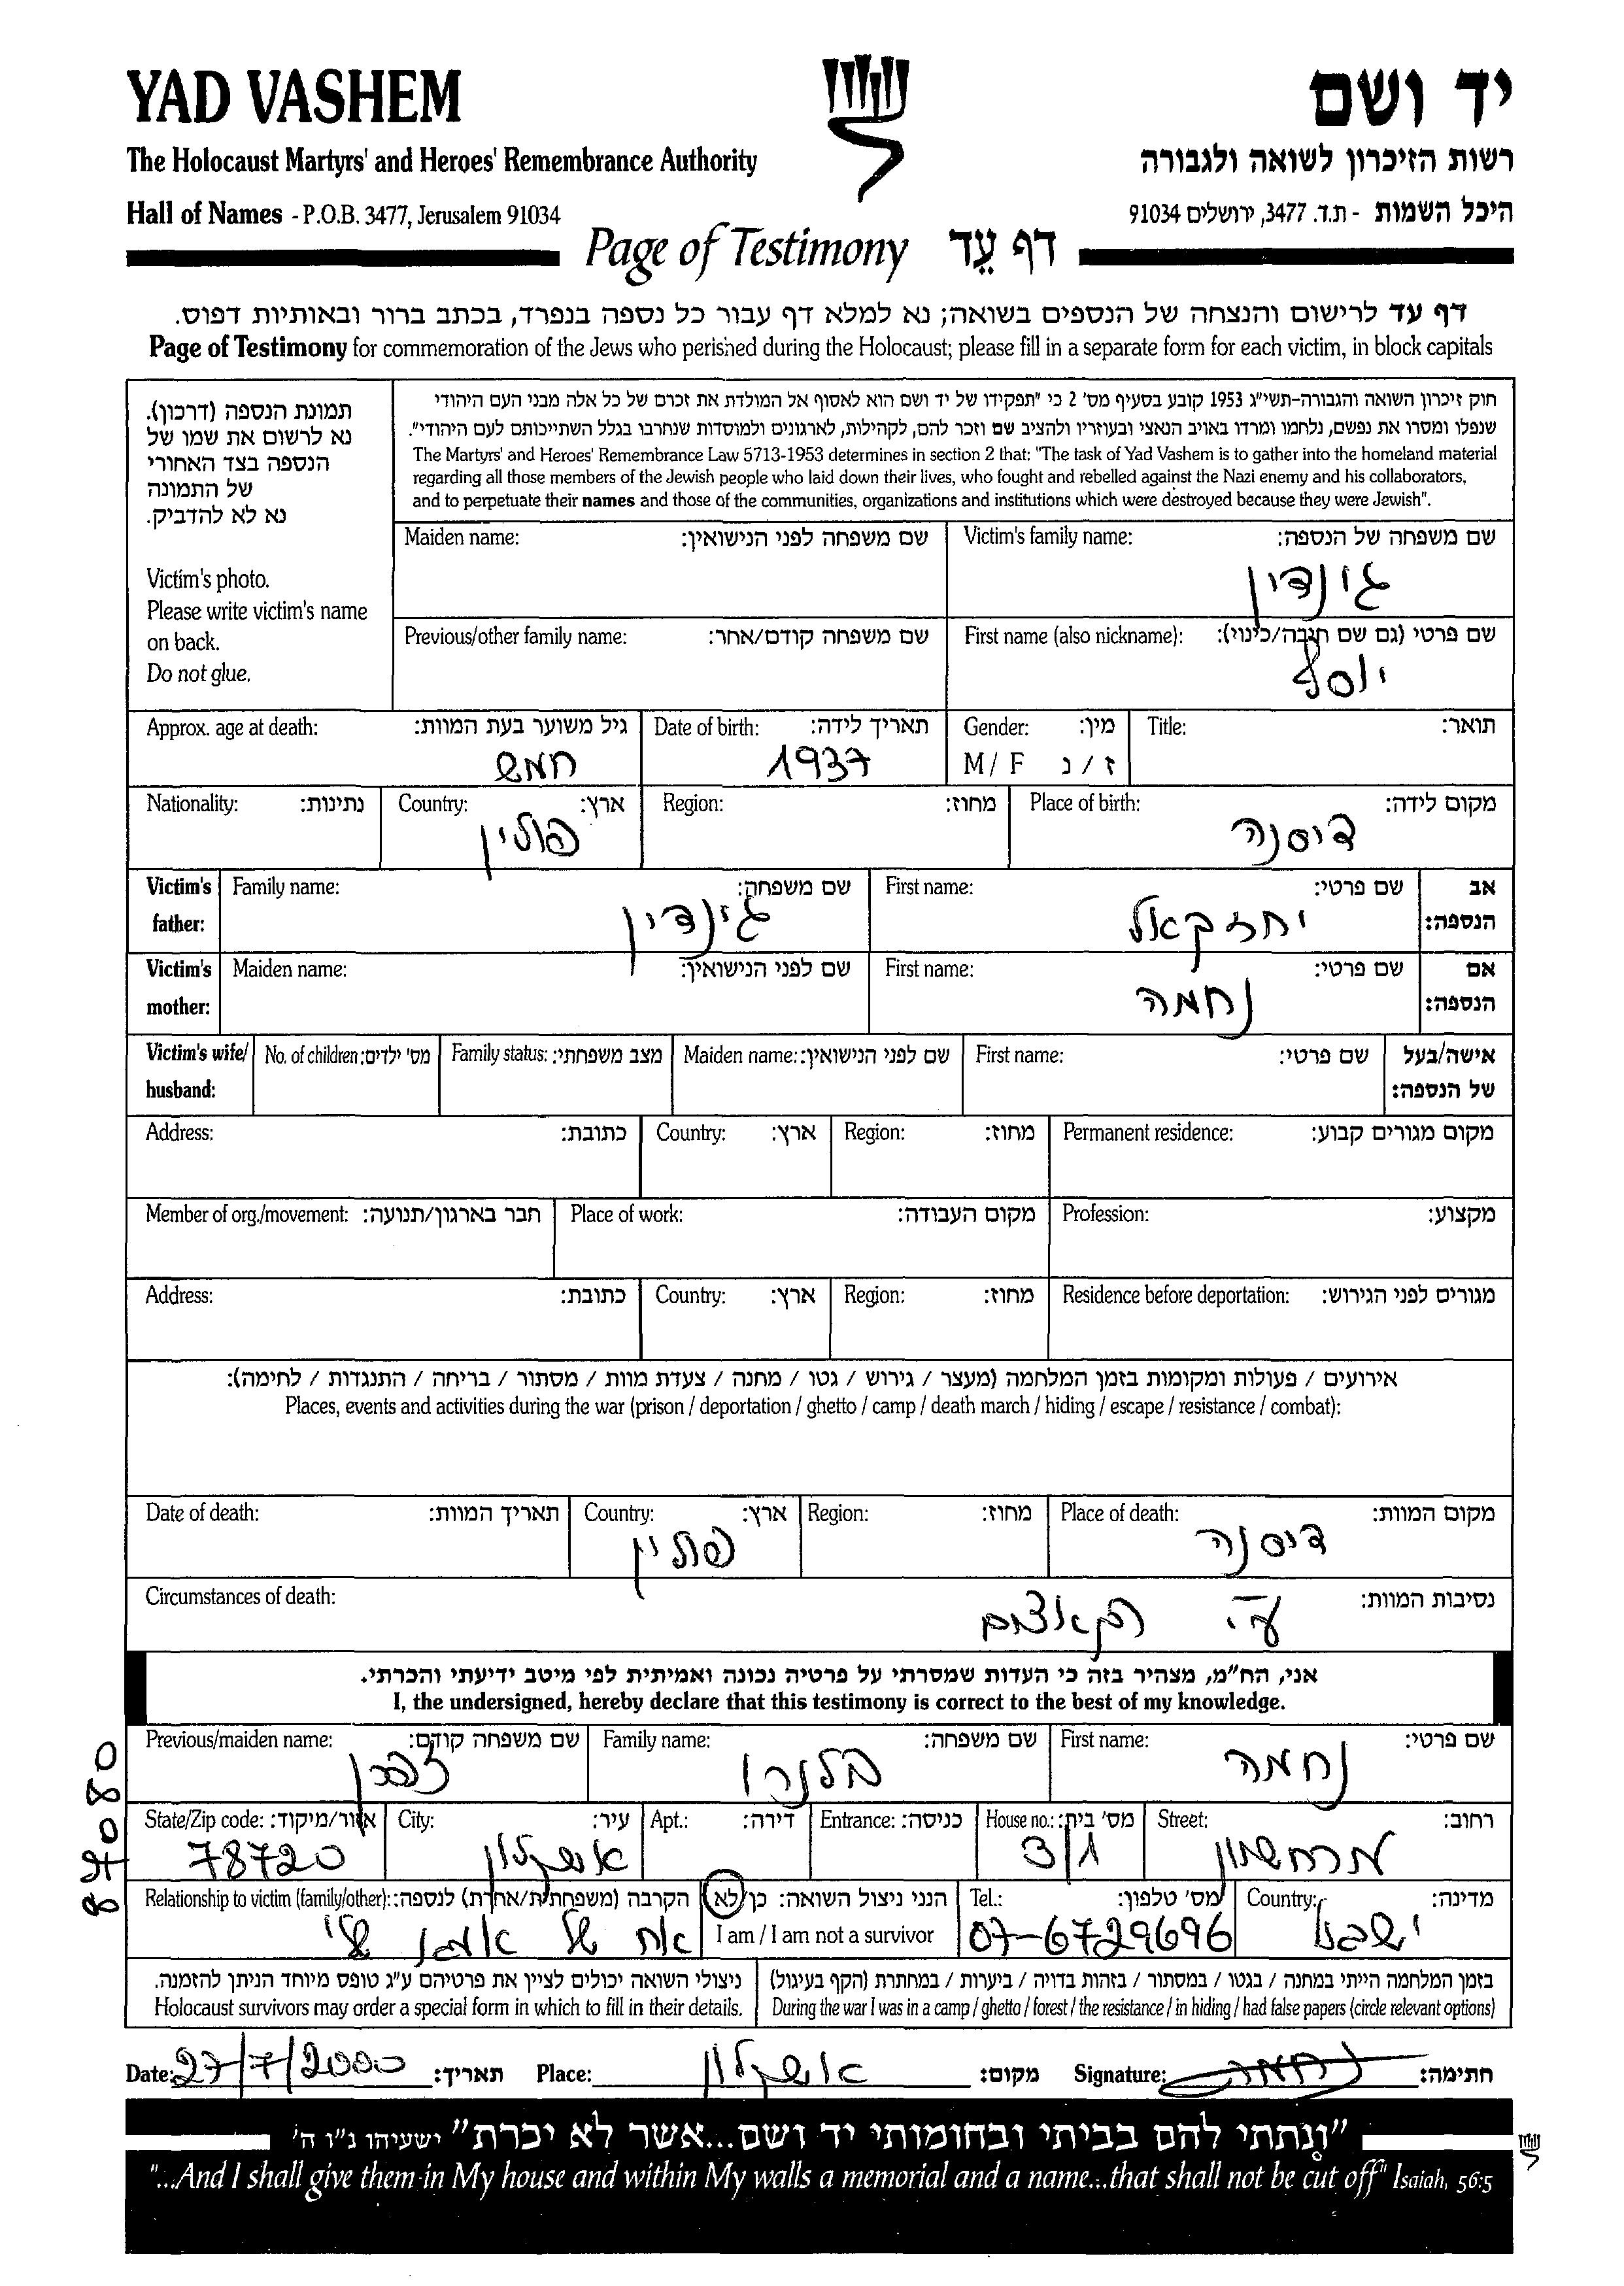 YAD VASHEM
יד ושם
The Holocaust Martyrs' and Heroes' Remembrance Authority
רשות הזיכרון לשואה ולגבורה
Hall of Names - P.O.B. 3477, Jerusalem 91034
היכל השמות - ת.ד. 3477, ירושלים 91034
Page of Testimony דף עֵד
דף עד לרישום והנצחה של הנספים בשואה; נא למלא דף עבור כל נספה בנפרד, בכתב ברור ובאותיות דפוס.
Page of Testimony for commemoration of the Jews who perished during the Holocaust; please fill in a separate form for each victim, in block capitals
תמונת הנספה (דרכון).
נא לרשום את שמו של
הנספה בצד האחורי
של התמונה
נא לא להדביק.
Victim's photo.
Please write victim's name
on back.
Do not glue.
חוק זיכרון השואה והגבורה-תשי"ג 1953 קובע בסעיף מס' 2 כי "תפקידו של יד ושם הוא לאסוף אל המולדת את זכרם של כל אלה מבני העם היהודי
שנפלו ומסרו את נפשם, נלחמו ומרדו באויב הנאצי ובעוזריו ולהציב שם וזכר להם, לקהילות, לארגונים ולמוסדות שנחרבו בגלל השתייכותם לעם היהודי".
The Martyrs' and Heroes' Remembrance Law 5713-1953 determines in section 2 that: "The task of Yad Vashem is to gather into the homeland material
regarding all those members of the Jewish people who laid down their lives, who fought and rebelled against the Nazi enemy and his collaborators,
and to perpetuate their names and those of the communities, organizations and institutions which were destroyed because they were Jewish".
Maiden name: שם משפחה לפני הנישואין:
Victim's family name: שם משפחה של הנספה:
גינדין
Previous/other family name: שם משפחה קודם/אחר:
First name (also nickname): שם פרטי (גם שם חיבה/כינוי):
יוסף
Approx. age at death: גיל משוער בעת המוות:
חמש
Date of birth: תאריך לידה:
1937
Gender: מין:
M / F ז / נ
Title: תואר:
Nationality: נתינות:
Country: ארץ:
פולין
Region: מחוז:
Place of birth: מקום לידה:
דיסנה
Victim's father:
Family name: שם משפחה:
גינדין
First name: שם פרטי:
יחזקאל
אב הנספה:
Victim's mother:
Maiden name: שם לפני הנישואין:
First name: שם פרטי:
נחמה
אם הנספה:
Victim's wife/ husband:
No. of children: מס' ילדים:
Family status: מצב משפחתי:
Maiden name: שם לפני הנישואין:
First name: שם פרטי:
אישה/בעל של הנספה:
Address: כתובת:
Country: ארץ:
Region: מחוז:
Permanent residence: מקום מגורים קבוע:
Member of org./movement: חבר בארגון/תנועה:
Place of work: מקום העבודה:
Profession: מקצוע:
Address: כתובת:
Country: ארץ:
Region: מחוז:
Residence before deportation: מגורים לפני הגירוש:
אירועים / פעולות ומקומות בזמן המלחמה (מעצר / גירוש / גטו / מחנה / צעדת מוות / מסתור / בריחה / התנגדות / לחימה):
Places, events and activities during the war (prison / deportation / ghetto / camp / death march / hiding / escape / resistance / combat):
Date of death: תאריך המוות:
Country: ארץ:
פולין
Region: מחוז:
Place of death: מקום המוות:
דיסנה
Circumstances of death: נסיבות המוות:
ע"י
אני, הח"מ, מצהיר בזה כי העדות שמסרתי על פרטיה נכונה ואמיתית לפי מיטב ידיעתי והכרתי.
I, the undersigned, hereby declare that this testimony is correct to the best of my knowledge.
Previous/maiden name: שם משפחה קודם:
Family name: שם משפחה:
First name: שם פרטי:
נחמה
State/Zip code: אזור/מיקוד:
78720
City: עיר:
אשקלון
Apt.: דירה:
Entrance: כניסה:
House no.: מס' בית:
3/1
Street: רחוב:
מרחשוון
Relationship to victim (family/other): הקרבה (משפחתית/אחרת) לנספה:
אח של אמא שלי
הנני ניצול השואה: כן/לא
I am / I am not a survivor
Tel.: מס' טלפון:
07-6729696
Country: מדינה:
ישראל
8 7080
ניצולי השואה יכולים לציין את פרטיהם ע"ג טופס מיוחד הניתן להזמנה.
Holocaust survivors may order a special form in which to fill in their details.
בזמן המלחמה הייתי במחנה / בגטו / במסתור / בזהות בדויה / ביערות / במחתרת (הקף בעיגול)
During the war I was in a camp / ghetto / forest / the resistance / in hiding / had false papers (circle relevant options)
Date: 27/7/2000 תאריך: Place: אשקלון מקום: Signature: נחמה חתימה:
"ונתתי להם בביתי ובחומותי יד ושם...אשר לא יכרת" ישעיהו נ"ו ה'
"...And I shall give them in My house and within My walls a memorial and a name...that shall not be cut off" Isaiah, 56:5